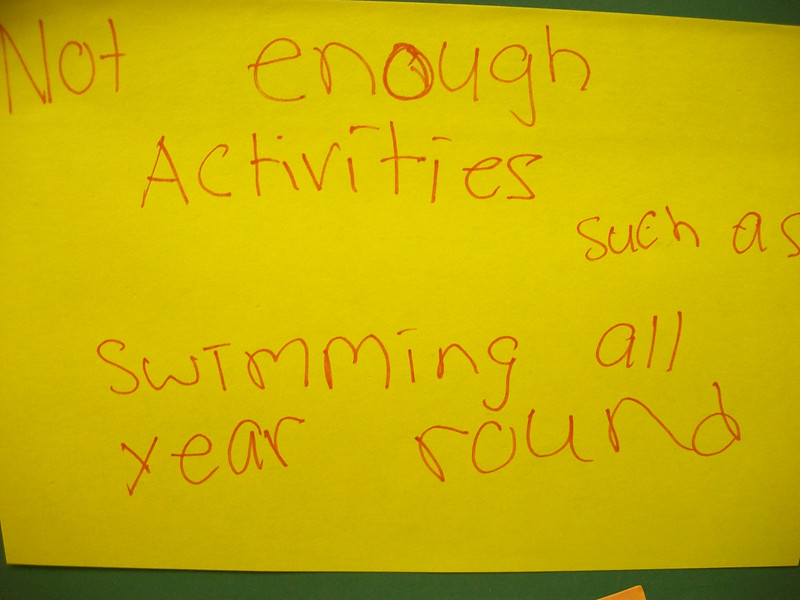 Not enough
Activities
such as
swimming all
year round